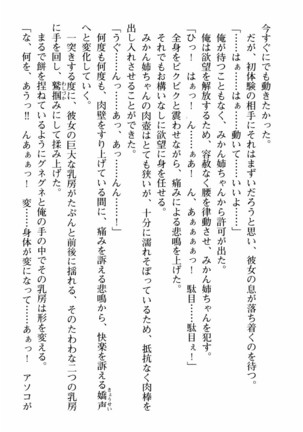 今すぐにでも動きたかった。
だが、初体験の相手にそれはまずいだろうと思い、彼女の息が落ち着くのを待つ。
「……はぁーっ……はぁーっ……動いて……いいよ……」
俺が待つこともなく、みかん姉ちゃんから許可が出た。
俺は欲望を解放するため、容赦なく腰を律動させ、みかん姉ちゃんを犯す。
「ひっ！　はぁっ！　んーっ！　あ、あぁぁぁっ！　駄目……駄目ぇ！」
全身をビクビクと震わせながら、痛みによる悲鳴を上げた。
それでもお構いなしに欲望に身を任せる。
みかん姉ちゃんの肉壺はとても狭いが、十分に濡れそぼっているため、抵抗なく肉棒を
出し入れさせることができた。
「うぐ……んっ……あっ、あっ……んん……！」
何度も何度も、肉壁をすり上げている間に、痛みを訴える悲鳴から、快楽を訴える嬌声
へと変化していく。
一突きする度に、彼女の巨大な乳房がたぷんと前後に揺れる。そのたわわな二つの乳房
に手を回し、鷲掴みにして揉み上げた。
まるで餅を捏ねているようにグネグネと俺の手の中でその乳房は形を変える。
「な、何を、あうっ!!　んあぁぁっ！　変……身体が変になって……あぁっ！　アソコが